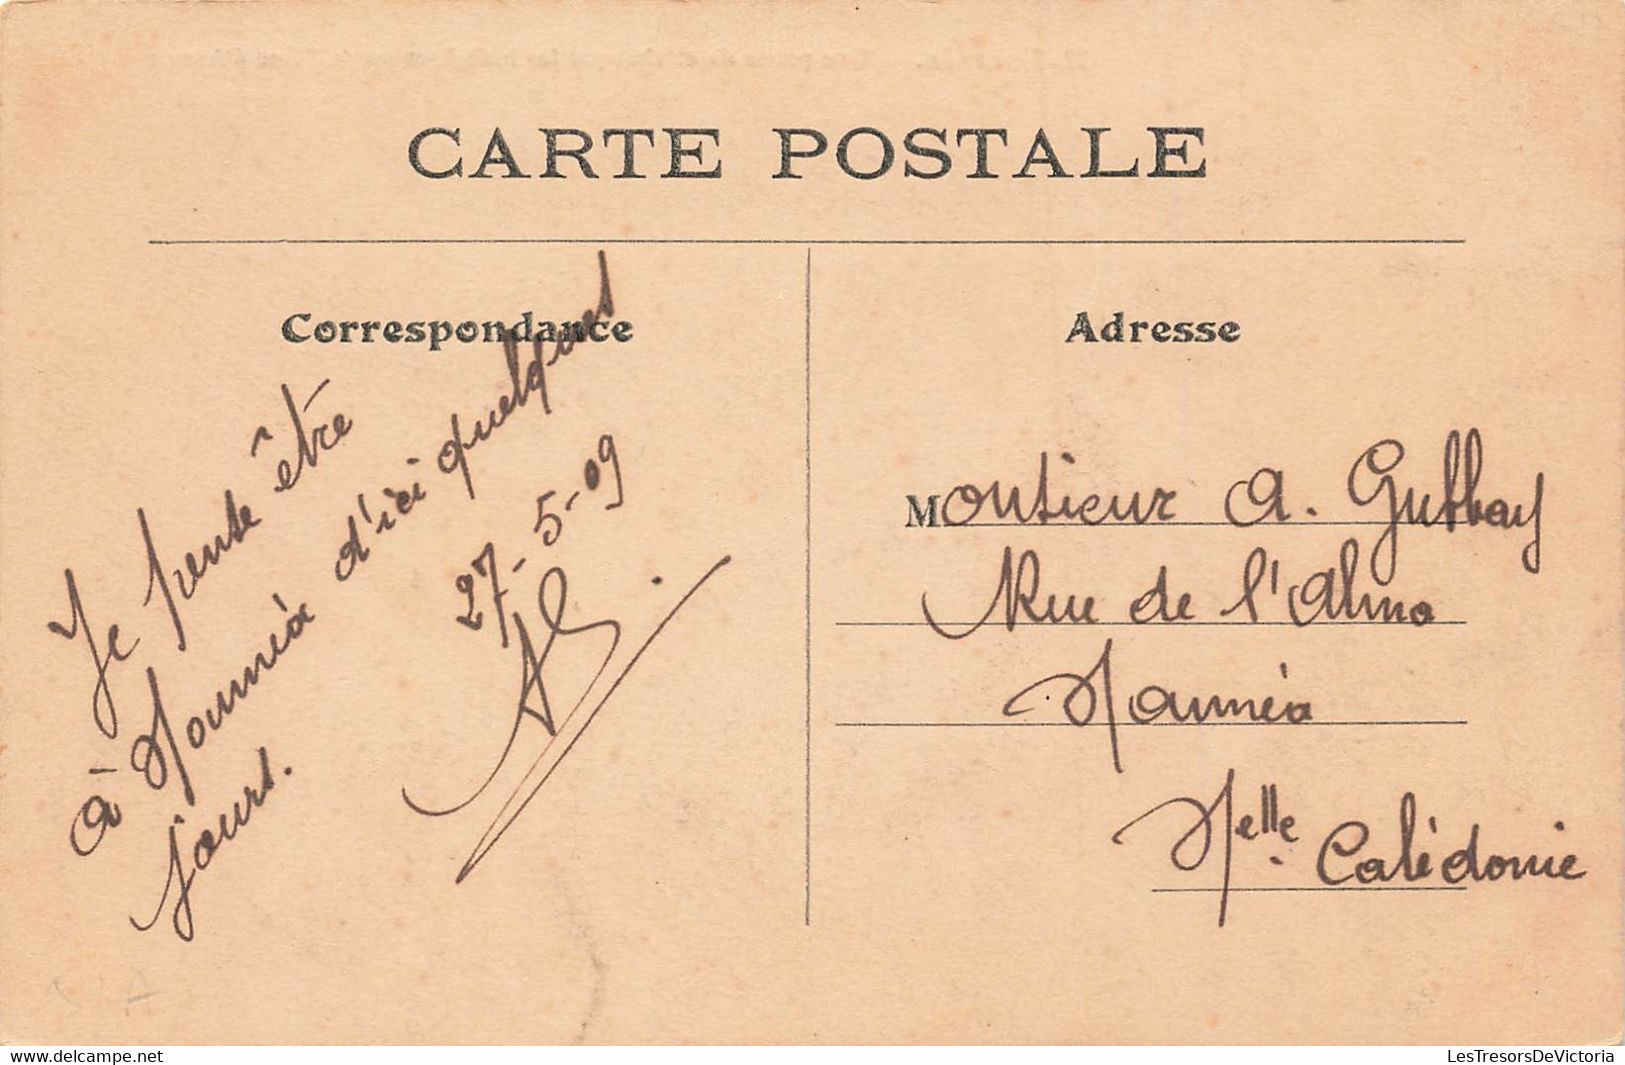 CARTE POSTALE
Correspondance
Je pense être
à Nouméa d'ici quelques
jours.
27-5-09
Adresse
Monsieur A. Gubbay
Rue de l'Alma
Nouméa
Nelle Calédonie
LesTresorsDeVictoria
www.delcampe.net